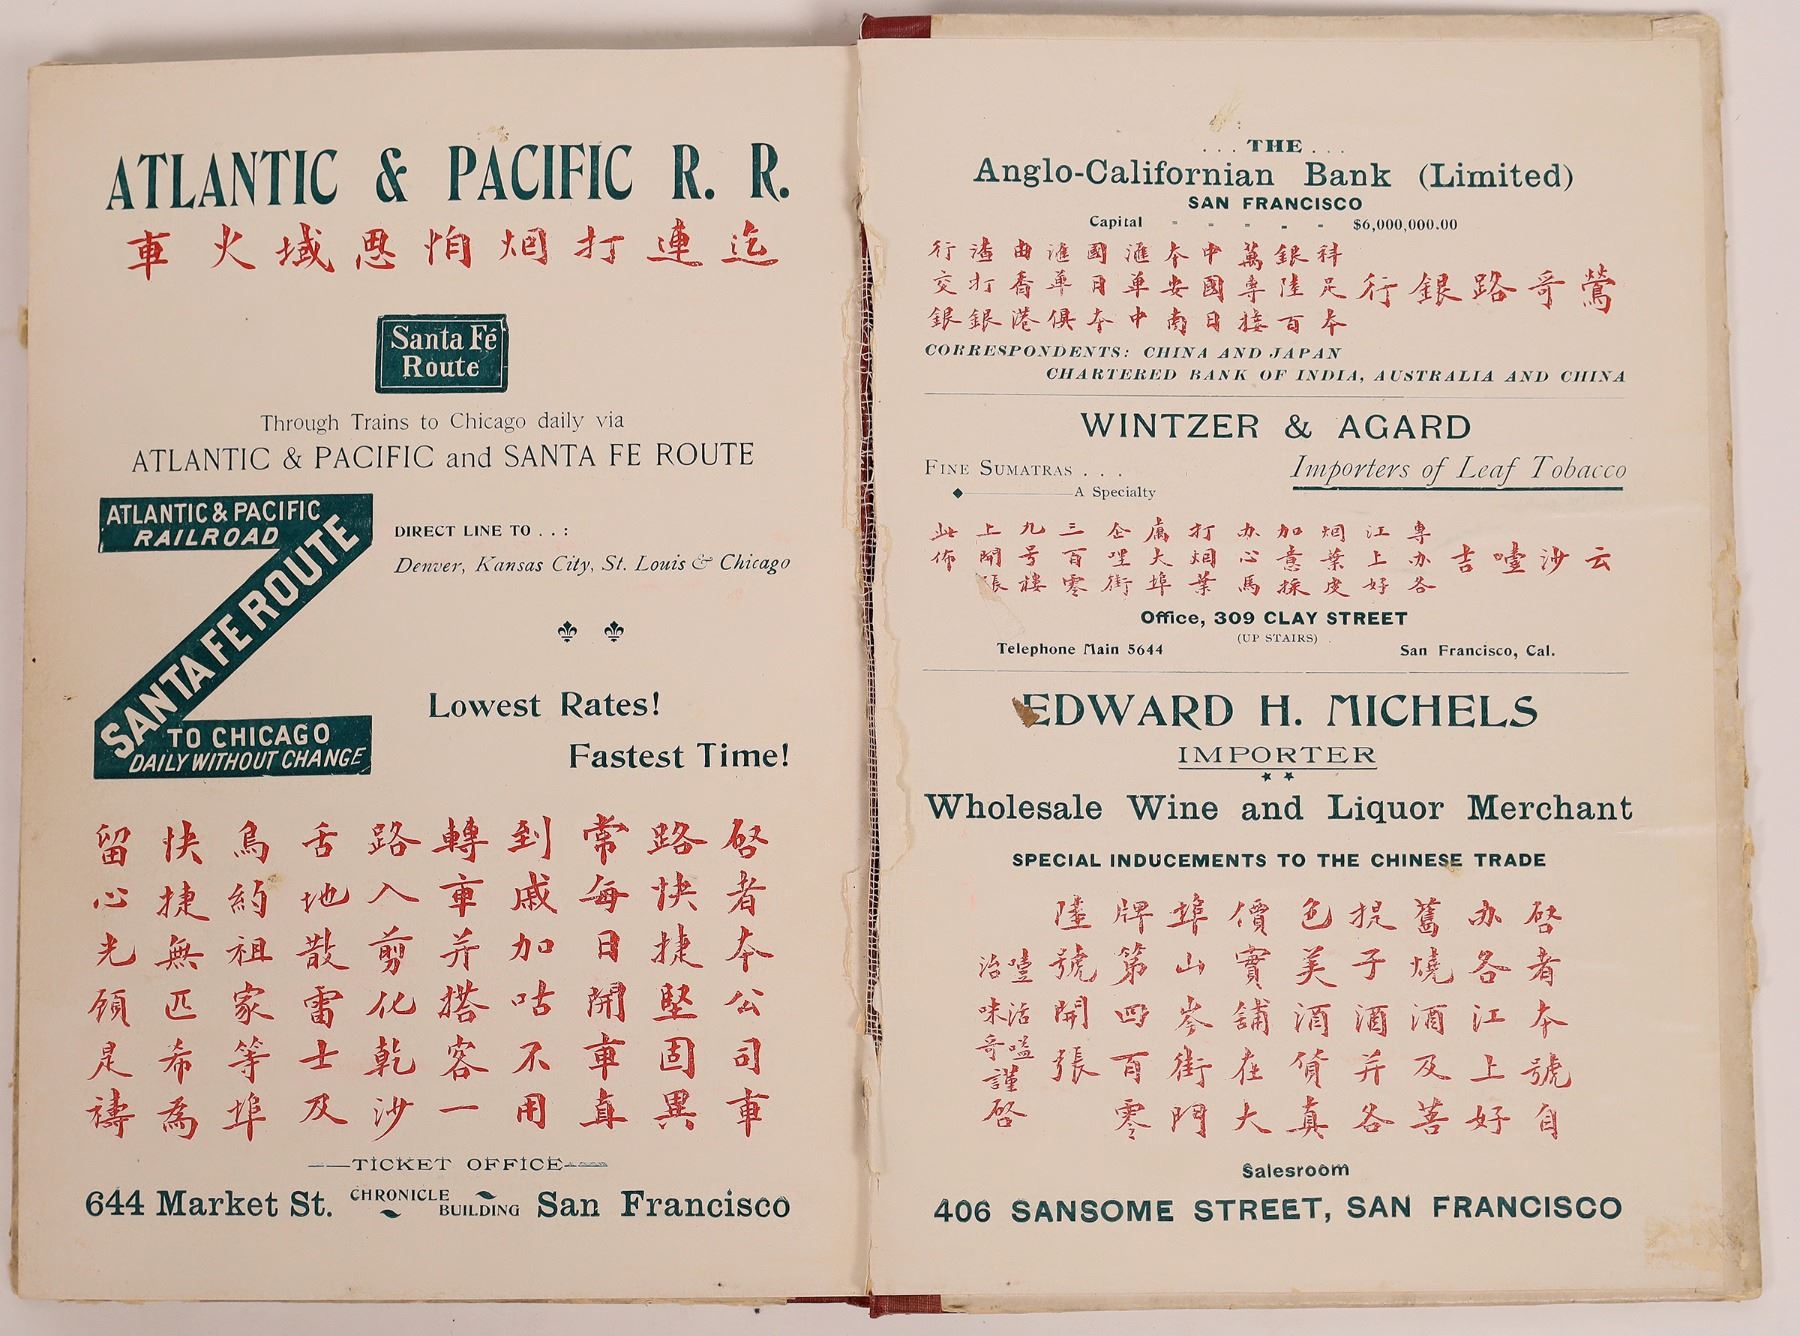 ATLANTIC & PACIFIC R. R.
迄連打烟怕恩域火車
Santa Fé
Route
Through Trains to Chicago daily via
ATLANTIC & PACIFIC and SANTA FE ROUTE
ATLANTIC & PACIFIC
RAILROAD
SANTA FE ROUTE
TO CHICAGO
DAILY WITHOUT CHANGE
DIRECT LINE TO . . :
Denver, Kansas City, St. Louis & Chicago
Lowest Rates!
Fastest Time!
啓者本公司車
路快捷堅固異
常每日開車直
到戚加咕不用
轉車并搭客一
路入剪化乾沙
舌地散雷士及
鳥約祖家等埠
快捷無匹希為
留心光顧是禱
TICKET OFFICE
644 Market St. CHRONICLE BUILDING San Francisco
. . . THE . . .
Anglo-Californian Bank (Limited)
SAN FRANCISCO
Capital - - - - - $6,000,000.00
鶯哥路銀行
科足本
銀陸百
萬專接
中國日
本安南
滙單中
國日本
滙單俱
由香港
渣打銀
行交銀
CORRESPONDENTS: CHINA AND JAPAN
CHARTERED BANK OF INDIA, AUSTRALIA AND CHINA
WINTZER & AGARD
FINE SUMATRAS . . .
A Specialty
Importers of Leaf Tobacco
云沙噎吉
專办各
江上好
烟葉皮
加意採
办心馬
打烟葉
属大埠
企哩街
三百零
九号樓
上開張
此佈
Office, 309 CLAY STREET
(UP STAIRS)
Telephone Main 5644
San Francisco, Cal.
EDWARD H. MICHELS
IMPORTER
Wholesale Wine and Liquor Merchant
SPECIAL INDUCEMENTS TO THE CHINESE TRADE
啓者本號自
办各江上好
舊燒酒及菩
提子酒并各
色美酒貨真
價實舖在大
埠山岑街門
牌第四百零
陸號開張
噎活嗌
治味哥
謹啓
Salesroom
406 SANSOME STREET, SAN FRANCISCO